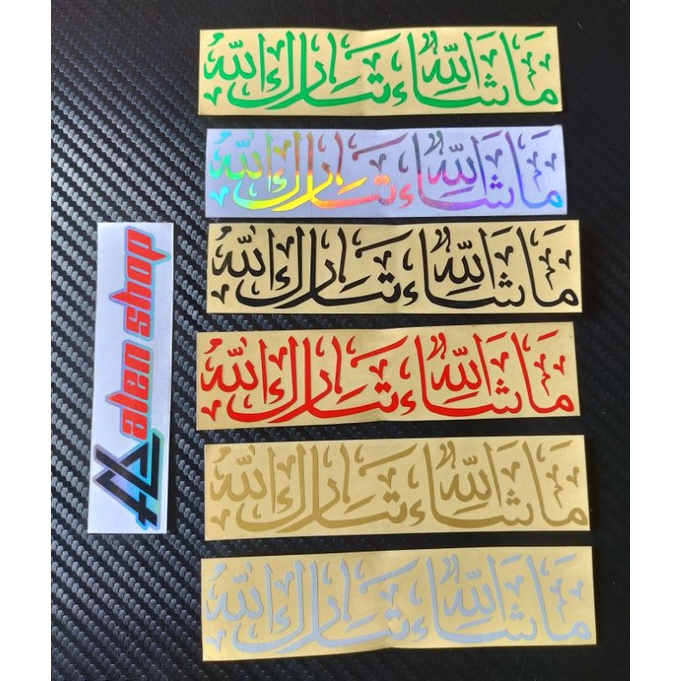 ما شاء الله تبارك الله
ما شاء الله تبارك الله
ما شاء الله تبارك الله
ما شاء الله تبارك الله
ما شاء الله تبارك الله
ما شاء الله تبارك الله
alen shop